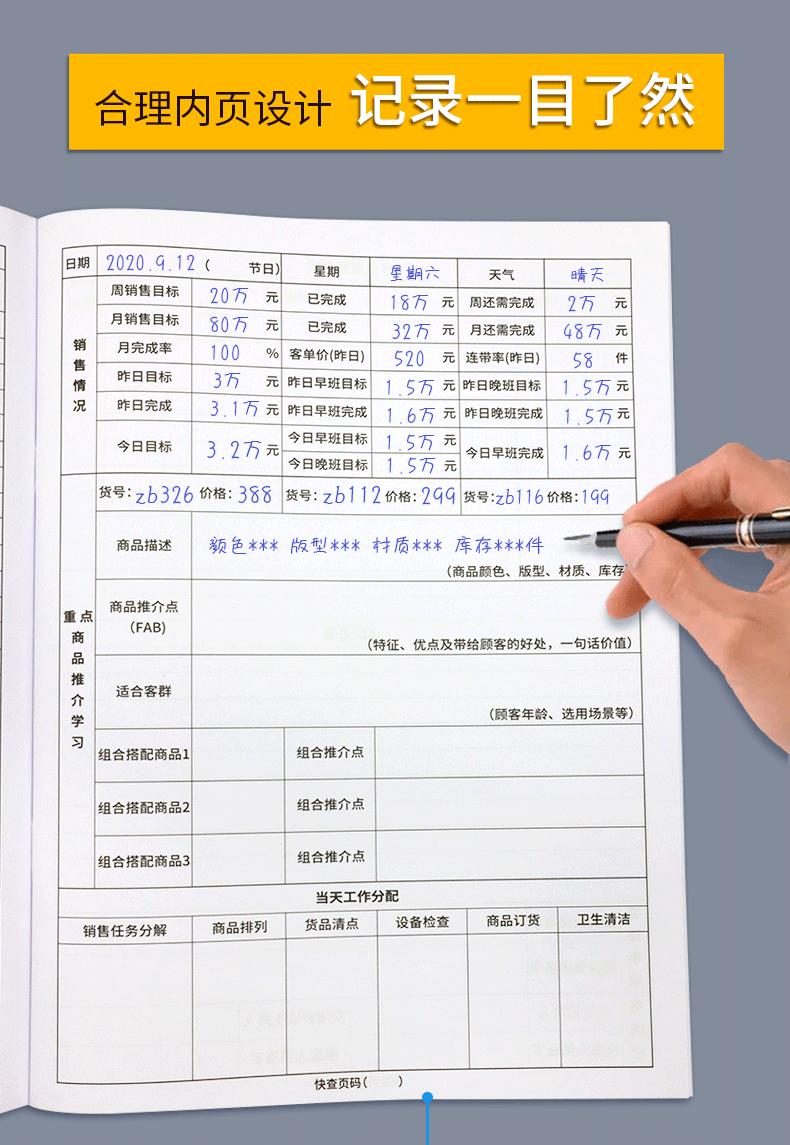 合理内页设计 记录一目了然
日期 2020.9.12 ( 节日) 星期 星期六 天气 晴天
销售情况
周销售目标 20万 元 已完成 18万 元 周还需完成 2万 元
月销售目标 80万 元 已完成 32万 元 月还需完成 48万 元
月完成率 100 % 客单价(昨日) 520 元 连带率(昨日) 58 件
昨日目标 3万 元 昨日早班目标 1.5万 元 昨日晚班目标 1.5万 元
昨日完成 3.1万 元 昨日早班完成 1.6万 元 昨日晚班完成 1.5万 元
今日目标 3.2万 元 今日早班目标 1.5万 元 今日早班完成 1.6万 元
今日晚班目标 1.5万 元
重点商品推介学习
货号: zb326 价格: 388 货号: zb112 价格: 299 货号: zb116 价格: 199
商品描述 颜色*** 版型*** 材质*** 库存***件
(商品颜色、版型、材质、库存)
商品推介点
(FAB)
(特征、优点及带给顾客的好处，一句话价值)
适合客群
(顾客年龄、选用场景等)
组合搭配商品1 组合推介点
组合搭配商品2 组合推介点
组合搭配商品3 组合推介点
当天工作分配
销售任务分解 商品排列 货品清点 设备检查 商品订货 卫生清洁
快查页码( )